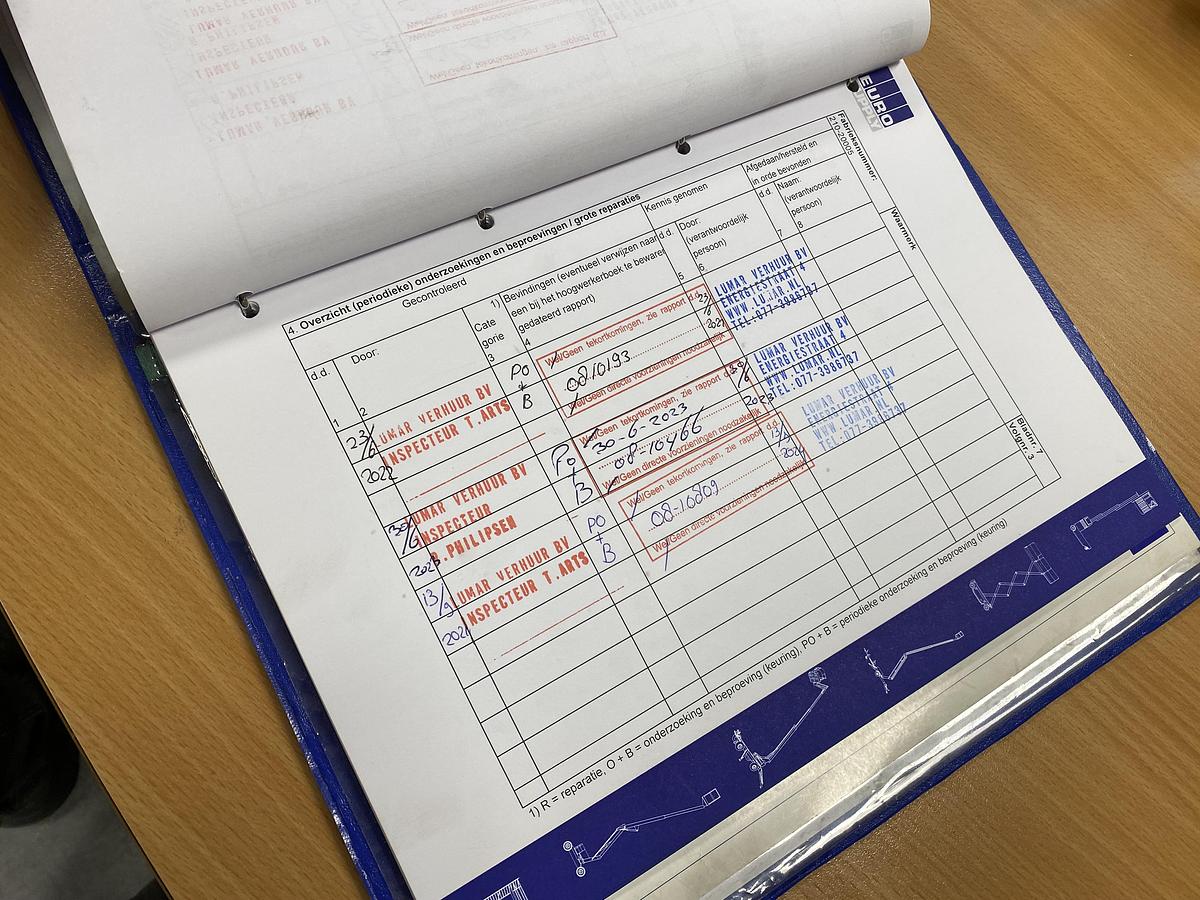 EURO
SUPPLY
Fabrieksnummer:
210-20005
Waarmerk
4. Overzicht (periodieke) onderzoekingen en beproevingen / grote reparaties
Gecontroleerd
Kennis genomen
Afgedaan/hersteld en
in orde bevonden
d.d.
Door:
Cate
gorie
1)
Bevindingen (eventueel verwijzen naar
een bij het hoogwerkerboek te bewaren
gedateerd rapport)
d.d.
Door:
(verantwoordelijk
persoon)
d.d.
Naam:
(verantwoordelijk
persoon)
1
2
3
4
5
6
7
8
23/6
2022
LUMAR VERHUUR BV
INSPECTEUR T.ARTS
PO
+
B
Wel/Geen tekortkomingen, zie rapport d.d.
0810193
Wel/Geen directe voorzieningen noodzakelijk
23/6
2022
LUMAR VERHUUR BV
ENERGIESTRAAT 4
WWW.LUMAR.NL
TEL:077-3986737
30/6
2023
LUMAR VERHUUR BV
INSPECTEUR
R.PHILIPSEN
PO
+
B
Wel/Geen tekortkomingen, zie rapport d.d.
30-6-2023
08-10466
Wel/Geen directe voorzieningen noodzakelijk
30/6
2023
LUMAR VERHUUR BV
ENERGIESTRAAT 4
WWW.LUMAR.NL
TEL:077-3986737
13/9
LUMAR VERHUUR BV
INSPECTEUR T.ARTS
PO
+
B
Wel/Geen tekortkomingen, zie rapport d.d.
08-10809
Wel/Geen directe voorzieningen noodzakelijk
13/9
LUMAR VERHUUR BV
ENERGIESTRAAT 4
WWW.LUMAR.NL
TEL:077-3986737
Bladnr. 7
Volgnr. 3
1) R = reparatie, O + B = onderzoeking en beproeving (keuring), PO + B = periodieke onderzoeking en beproeving (keuring)